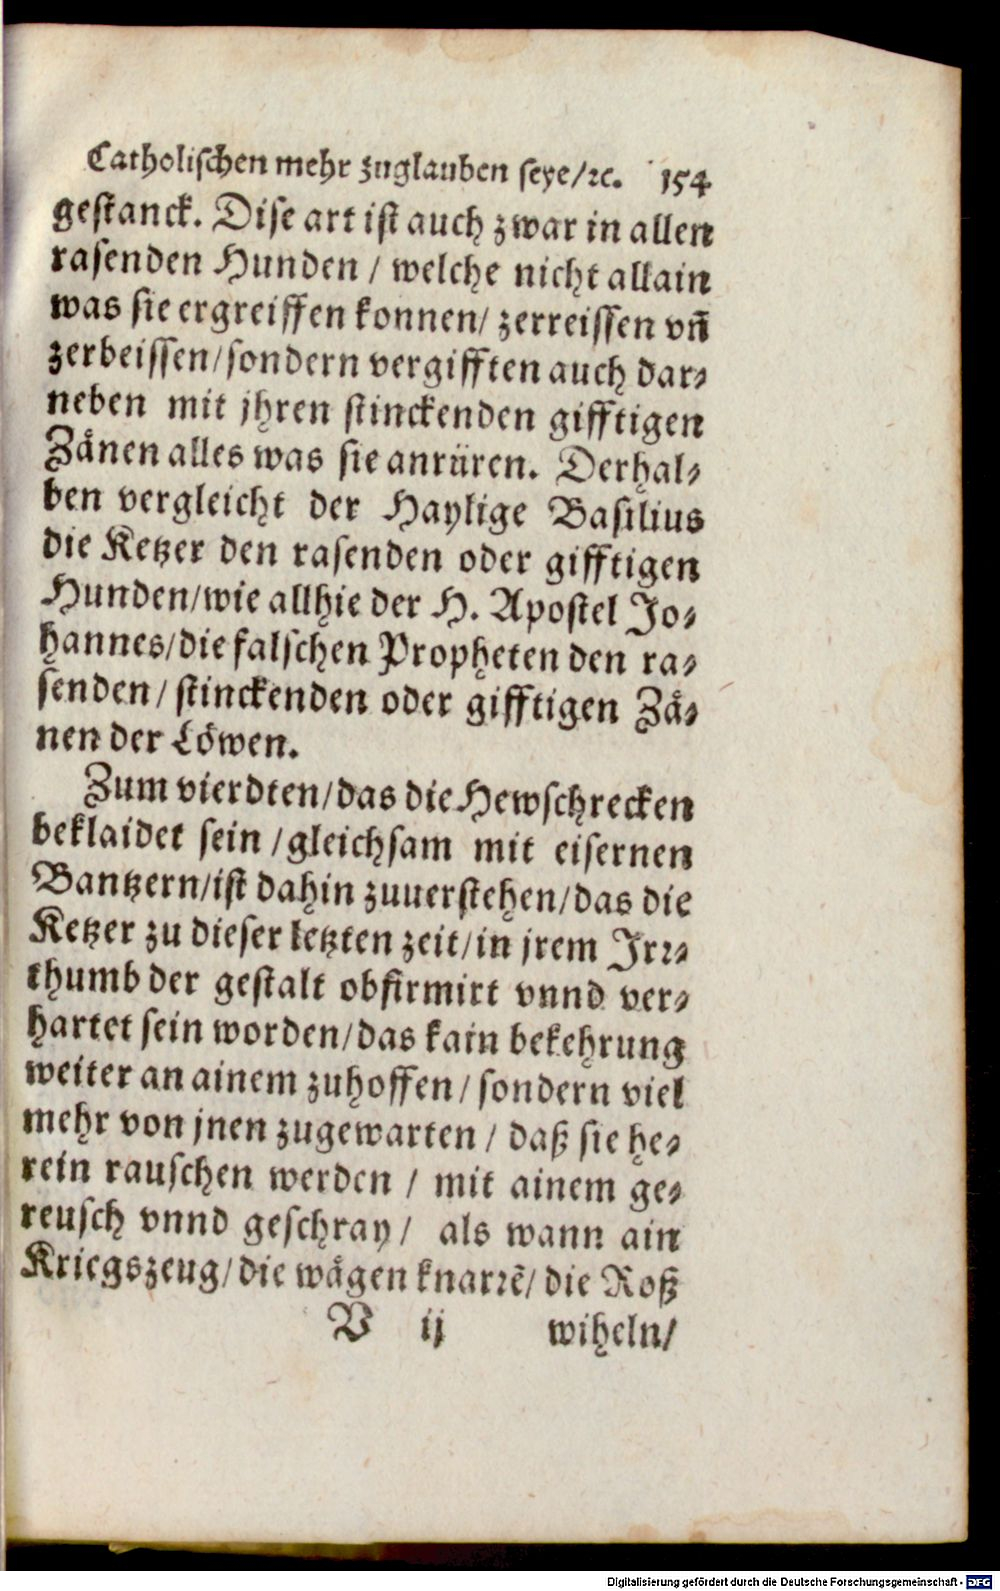 Catholischen mehr zuglauben seye/ꝛc. 154
gestanck. Dise art ist auch zwar in allen
rasenden Hunden / welche nicht allain
was sie ergreiffen konnen/ zerreissen vñ
zerbeissen/sondern vergifften auch dar⸗
neben mit jhren stinckenden gifftigen
Zänen alles was sie anrüren. Derhal⸗
ben vergleicht der Haylige Basilius
die Ketzer den rasenden oder gifftigen
Hunden/wie allhie der H. Apostel Jo⸗
hannes/die falschen Propheten den ra⸗
senden/ stinckenden oder gifftigen Zä⸗
nen der Löwen.
Zum vierdten/das die Hewschrecken
beklaidet sein /gleichsam mit eisernen
Bantzern/ist dahin zuuerstehen/das die
Ketzer zu dieser letzten zeit/in jrem Irr⸗
thumb der gestalt obfirmirt vnnd ver⸗
hartet sein worden/das kain bekehrung
weiter an ainem zuhoffen/ sondern viel
mehr von jnen zugewarten / daß sie he⸗
rein rauschen werden / mit ainem ge⸗
reusch vnnd geschray/ als wann ain
Kriegszeug/die wägen knarrẽ/ die Roß
V ij wiheln/
Digitalisierung gefördert durch die Deutsche Forschungsgemeinschaft - DFG